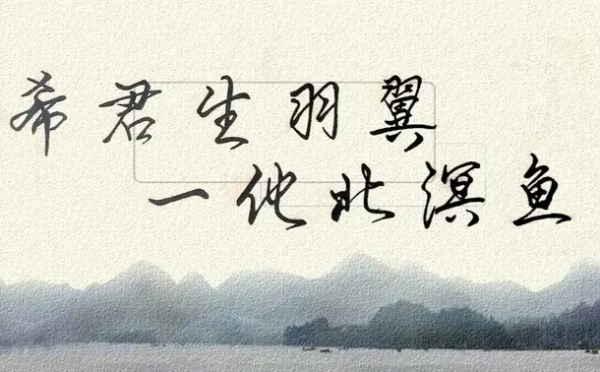 希君生羽翼
一他北溟鱼